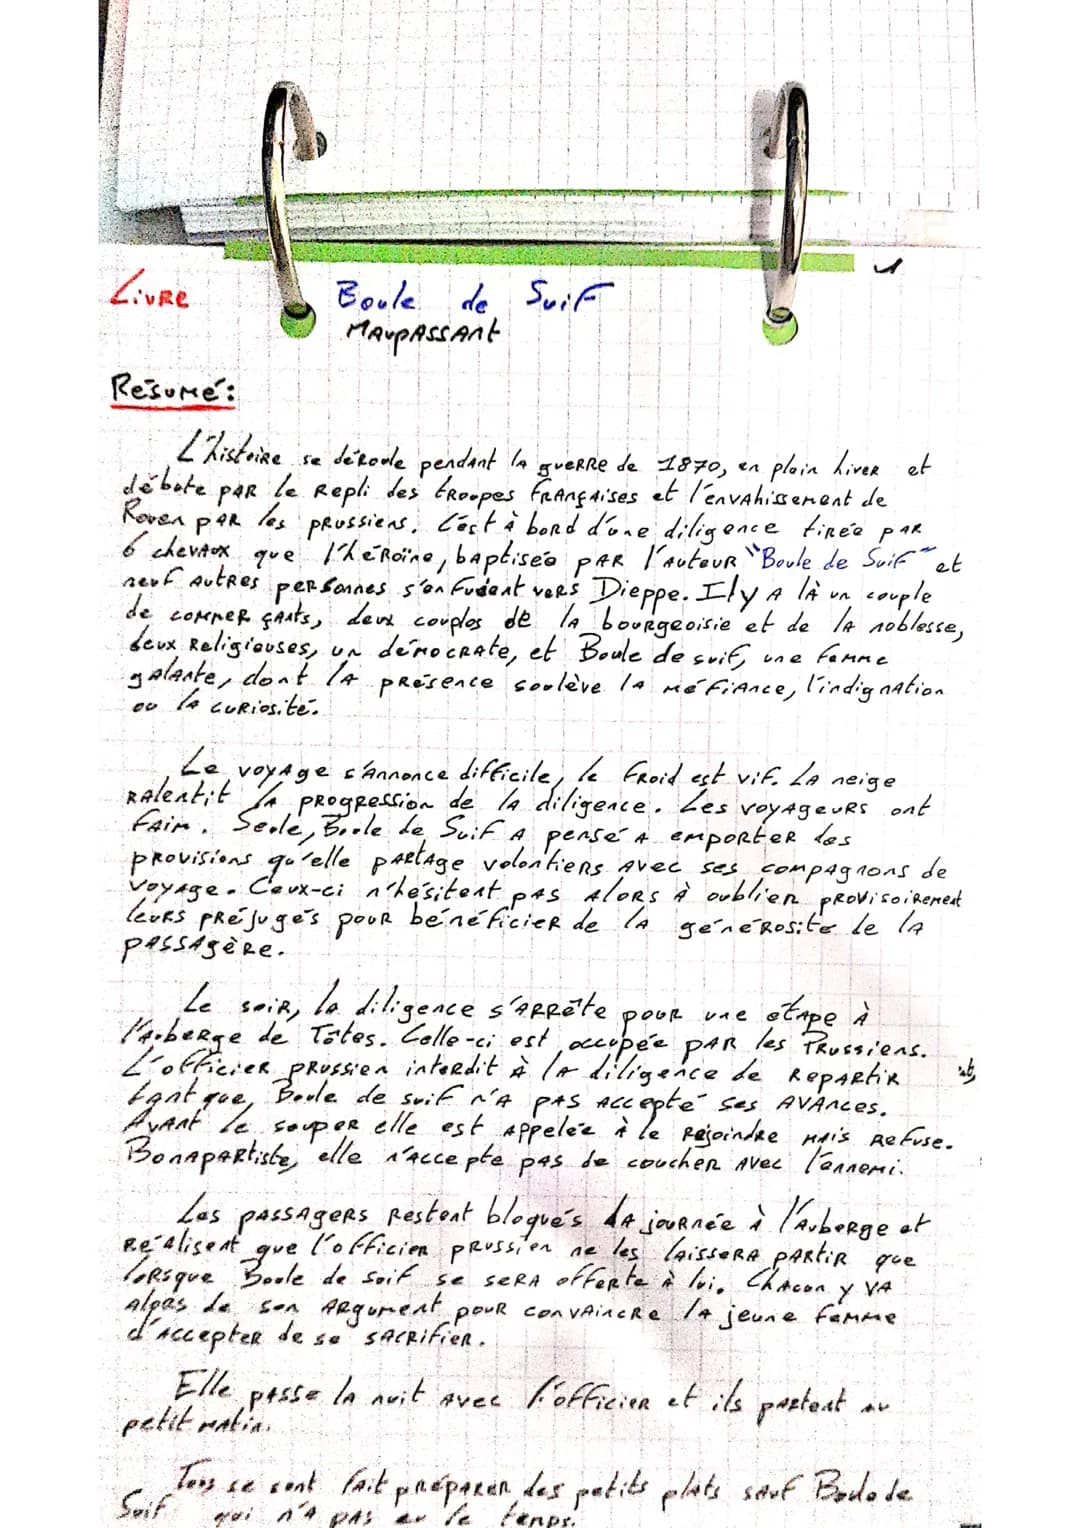 Livre
Boule de Suif
Maupassant
Résumé:
L'histoire se déroule pendant la guerre de 1870, en plein hiver et
débute par le repli des troupes françaises et l'envahissement de
Rouen par les prussiens. C'est à bord d'une diligence tirée par
6 chevaux que l'héroïne, baptisée par l'auteur "Boule de Suif" et
neuf autres personnes s'enfuient vers Dieppe. Il y a là un couple
de commerçants, deux couples de la bourgeoisie et de la noblesse,
deux religieuses, un démocrate, et Boule de suif, une femme
galante, dont la présence soulève la méfiance, l'indignation
ou la curiosité.
Le voyage s'annonce difficile, le froid est vif. La neige
ralentit la progression de la diligence. Les voyageurs ont
faim. Seule, Boule de Suif a pensé a emporter des
provisions qu'elle partage volontiers avec ses compagnons de
voyage. Ceux-ci n'hésitent pas alors à oublier provisoirement
leurs préjugés pour bénéficier de la générosité de la
passagère.
Le soir, la diligence s'arrête pour une étape à
l'auberge de Tôtes. Celle-ci est occupée par les Prussiens.
L'officier prussien interdit à la diligence de repartir
tant que, Boule de suif n'a pas accepté ses avances.
Avant le souper elle est appelée à le rejoindre mais refuse.
Bonapartiste, elle n'accepte pas de coucher avec l'ennemi.
Les passagers restent bloqués la journée à l'auberge et
réalisent que l'officier prussien ne les laissera partir que
lorsque Boule de suif se sera offerte à lui. Chacun y va
alors de son argument pour convaincre la jeune femme
d'accepter de se sacrifier.
Elle passe la nuit avec l'officier et ils partent au
petit matin.
Tous se sont fait préparer des petits plats sauf Boule de
Suif qui n'a pas eu le temps.